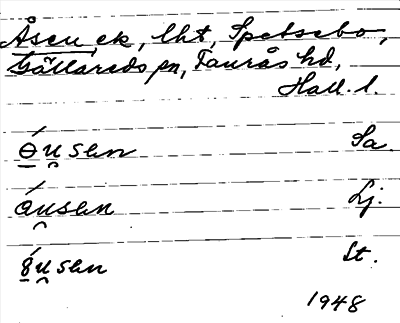 Åsen, ek, lht, Spetsebo,
Gällareds sn, Faurås hd,
Hall. l.
ɵ́u̯sen Sa.
áu̯sen Lj.
u̯sen St.
1948